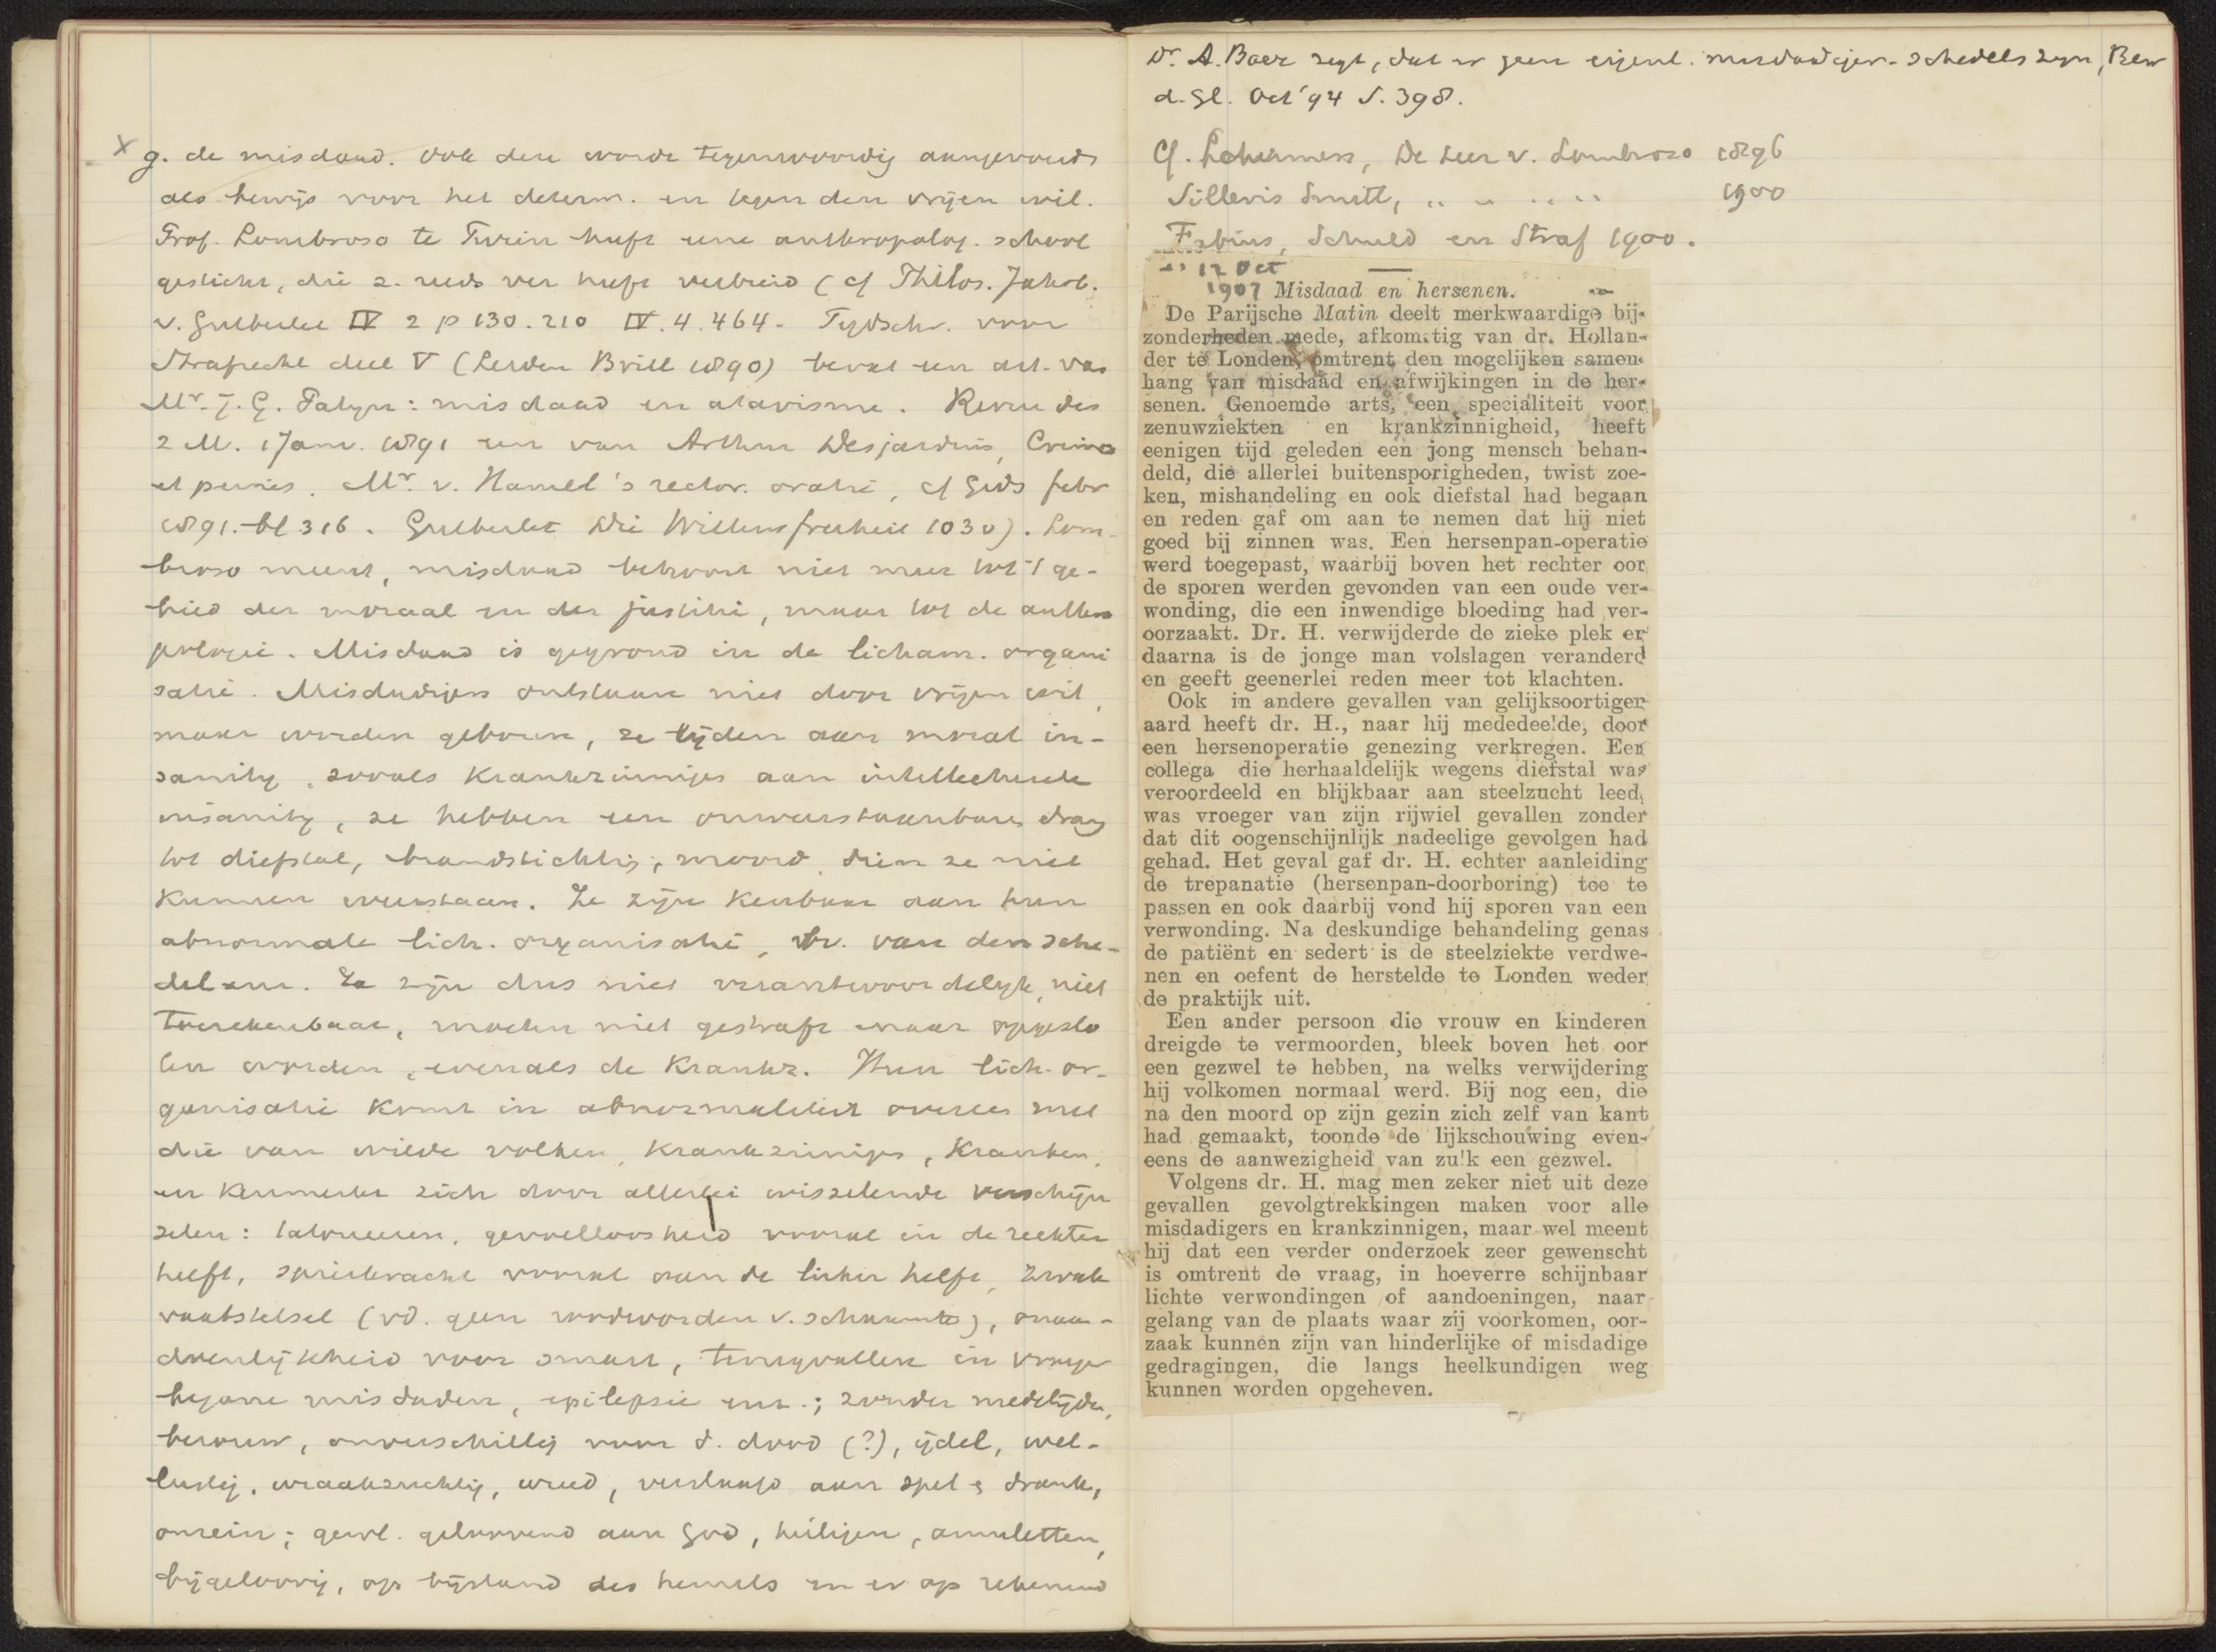 x g. de misdaad. Ook deze wordt tegenwoordig aangevoerd
als bewijs voor het determ. en tegen den vrijen wil.
Prof. Lombroso te Turin heeft eene anthropolog. school
gesticht, die z. reeds ver heeft verbreid (cf Philos. Jahrb.
v. Gutberlet IV 2 p 130. 210 IV. 4. 464 - Tijdschr. voor
Strafrecht deel V (Leiden Brill 1890) bevat een art. van
Mr. J. G. Patijn: misdaad en atavisme. Revue des
2 M. 1 Janv. 1891 een van Arthur Desjardins, Crimes
et peines. Mr. v. Hamel's rector. oratie, cf Gids febr
1891. bl 316. Gutberlet Die Willensfreiheit 1030). Lom-
broso meent, misdaad behoort niet meer tot 't ge-
bied der moraal en der justitie, maar tot de anthro
pologie. Misdaad is gegrond in de licham. organi
satie. Misdadigers ontstaan niet door vrijen wil,
maar worden geboren, ze lijden aan moral in-
sanity, zooals krankzinnigen aan intellectueele
insanity, ze hebben een onweerstaanbaren drang
tot diefstal, brandstichting, moord, dien ze niet
kunnen weerstaan. Ze zijn kenbaar aan hun
abnormale lich. organisatie, bv. van den sche-
del enz. Ze zijn dus niet verantwoordelijk, niet
toerekenbaar, moeten niet gestraft maar opgeslo
ten worden, evenals de krankz. Hun lich. or-
ganisatie komt in abnormaliteit overeen met
die van wilde volken, krankzinnigen, kranken,
en kenmerkt zich door allerlei wisselende verschijn
selen: tatoueeren, gevoelloosheid vooral in de rechter
helft, spierkracht vooral aan de linker helft, zwak
vaatstelsel (vd. geen roodworden v. schaamte), onaan-
doenlijkheid voor smart, terugvallen in vroeger
begane misdaden, epilepsie enz.; zonder medelijden,
berouw, onverschillig voor d. dood (?), ijdel, wel-
lustig, wraakzuchtig, wreed, verslaafd aan spel & drank,
onrein; gewl. geloovend aan God, heiligen, amuletten,
bijgeloovig, op bijstand des hemels en er op rekenend
Dr. A. Baer zegt, dat er geen eigenl. misdadiger-schedels zijn, Bew
d. Gl. Oct '94 S. 398.
Cf. , De Leer v. Lombroso 1896
Sillevis Smitt, " " " " 1900
Fabius, Schuld en Straf 1900.
12 Oct
1907 Misdaad en hersenen.
De Parijsche Matin deelt merkwaardige bij-
zonderheden mede, afkomstig van dr. Hollan-
der te Londen, omtrent den mogelijken samen-
hang van misdaad en afwijkingen in de her-
senen. Genoemde arts, een specialiteit voor
zenuwziekten en krankzinnigheid, heeft
eenigen tijd geleden een jong mensch behan-
deld, die allerlei buitensporigheden, twist zoe-
ken, mishandeling en ook diefstal had begaan
en reden gaf om aan te nemen dat hij niet
goed bij zinnen was. Een hersenpan-operatie
werd toegepast, waarbij boven het rechter oor
de sporen werden gevonden van een oude ver-
wonding, die een inwendige bloeding had ver-
oorzaakt. Dr. H. verwijderde de zieke plek en
daarna is de jonge man volslagen veranderd
en geeft geenerlei reden meer tot klachten.
Ook in andere gevallen van gelijksoortigen
aard heeft dr. H., naar hij mededeelde, door
een hersenoperatie genezing verkregen. Een
collega die herhaaldelijk wegens diefstal was
veroordeeld en blijkbaar aan steelzucht leed,
was vroeger van zijn rijwiel gevallen zonder
dat dit oogenschijnlijk nadeelige gevolgen had
gehad. Het geval gaf dr. H. echter aanleiding
de trepanatie (hersenpan-doorboring) toe te
passen en ook daarbij vond hij sporen van een
verwonding. Na deskundige behandeling genas
de patiënt en sedert is de steelziekte verdwe-
nen en oefent de herstelde te Londen weder
de praktijk uit.
Een ander persoon die vrouw en kinderen
dreigde te vermoorden, bleek boven het oor
een gezwel te hebben, na welks verwijdering
hij volkomen normaal werd. Bij nog een, die
na den moord op zijn gezin zich zelf van kant
had gemaakt, toonde de lijkschouwing even-
eens de aanwezigheid van zulk een gezwel.
Volgens dr. H. mag men zeker niet uit deze
gevallen gevolgtrekkingen maken voor alle
misdadigers en krankzinnigen, maar wel meent
hij dat een verder onderzoek zeer gewenscht
is omtrent de vraag, in hoeverre schijnbaar
lichte verwondingen of aandoeningen, naar
gelang van de plaats waar zij voorkomen, oor-
zaak kunnen zijn van hinderlijke of misdadige
gedragingen, die langs heelkundigen weg
kunnen worden opgeheven.